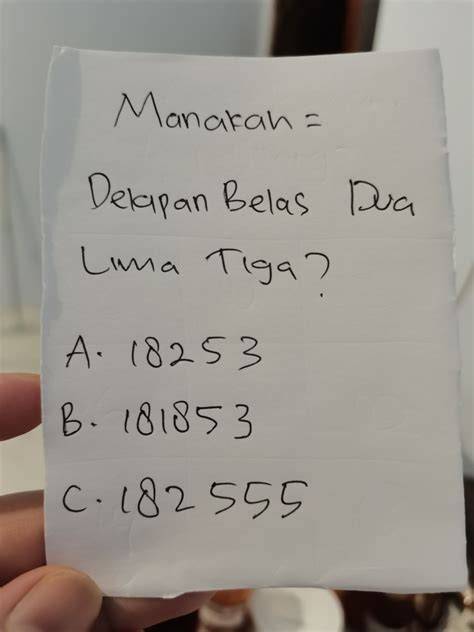 Manakah =
Delapan Belas Dua
Lima Tiga?
A. 18253
B. 181853
C. 182555